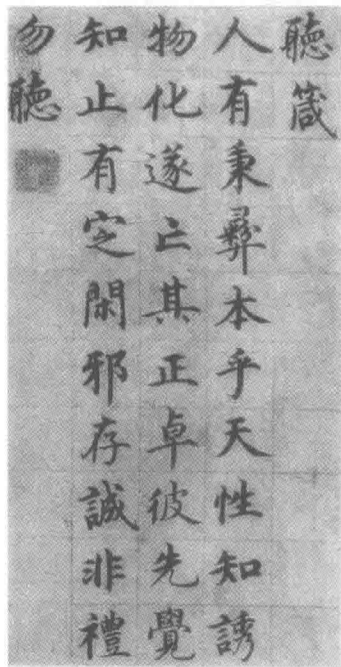 聽箴
人有秉彛本乎天性知誘
物化遂亡其正卓彼先覺
知止有定閑邪存誠非禮
勿聽